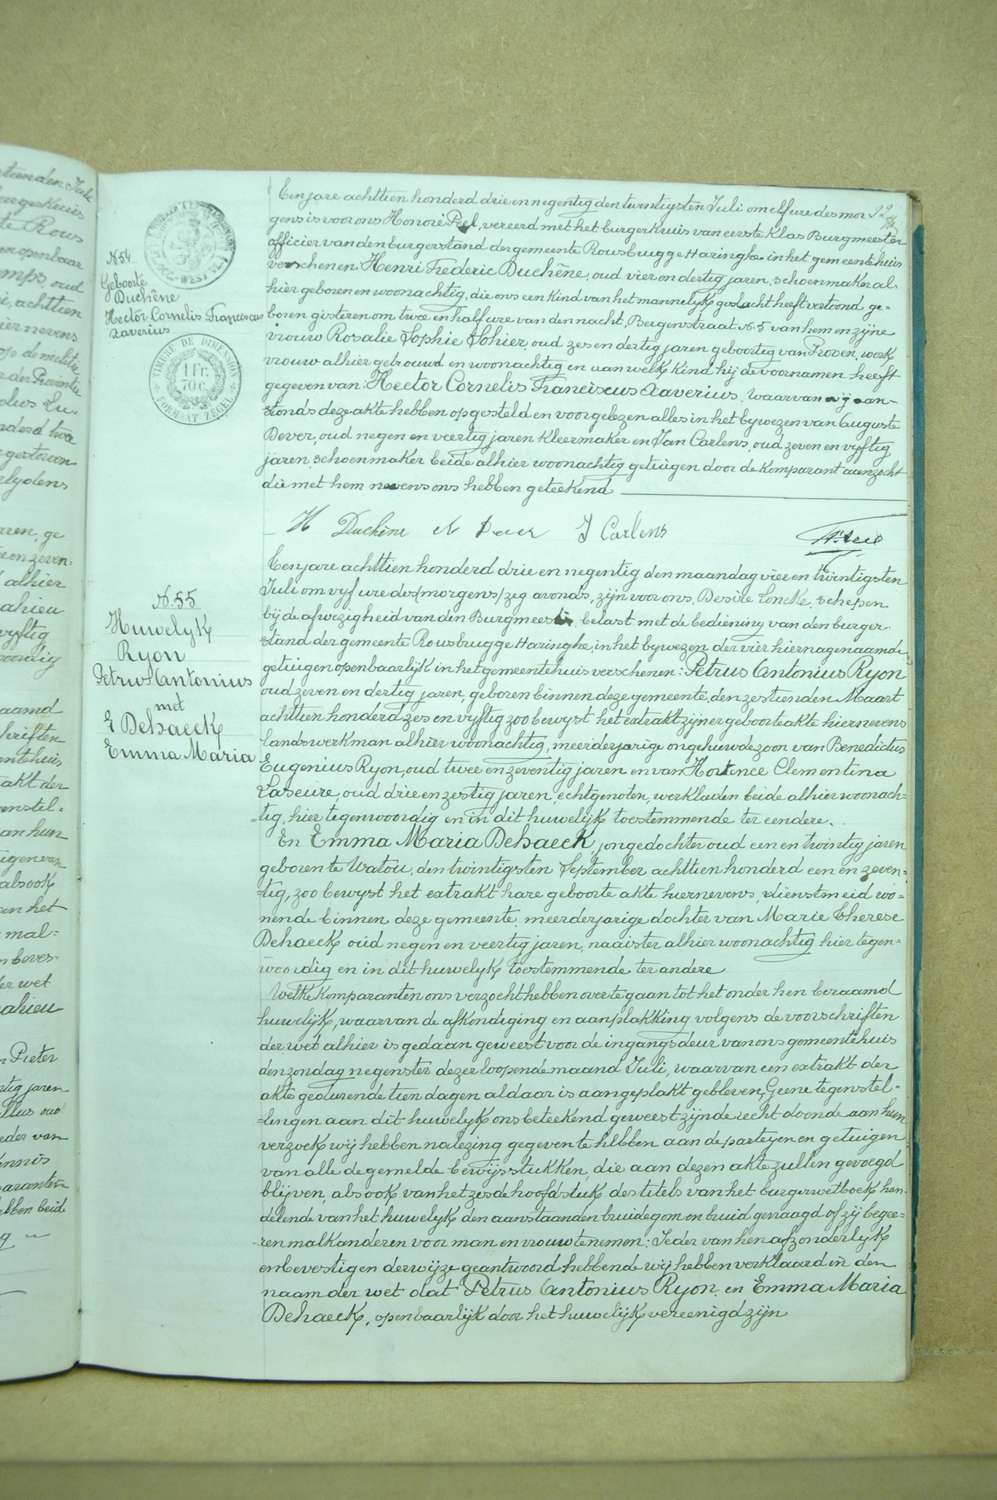 Een jare achttien honderd drie en negentig den twintigsten Juli om elf ure des mor
gens is voor ons Honoré Peel, vereerd met het burgerkruis van eerste klas Burgmeester
officier van den burgerstand der gemeente Rousbrugge Haringhe in het gemeentehuis
verschenen Henri Frederic Duchêne, oud vier en dertig jaren, schoenmaker al-
hier geboren en woonachtig, die ons een kind van het mannelijk geslacht heeft vertoond ge-
boren gisteren om twee en half ure van den nacht, Bergenstraat N. 5 van hem en zijne
vrouw Rosalie Sophie Sohier, oud zes en dertig jaren geboortig van Proven, werk
vrouw alhier gehuwd en woonachtig en aan welk kind hij de voornamen heeft
gegeven van Hector Cornelis Franciscus Xaverius, Waarvan wij aan-
stonds deze akte hebben opgesteld en voorgelezen alles in het bywezen van Auguste
Dever, oud negen en veertig jaren kleermaker en Jan Carlens, oud zeven en vyftig
jaren, schoenmaker beide alhier woonachtig getuigen door de komparant aanzocht
die met hem nevens ons hebben geteekend
H Duchêne A Dever J Carlens
N. 54
Geboorte
Duchêne
Hector Cornelis Franciscus
Xaverius
TIMBRE DE DIMENSION
1 Fr. 70 C.
FORMAAT ZEGEL
N. 55
Huwelyk
Ryon
Petrus Antonius
met
E Dehaeck
Emma Maria
Een jare achttien honderd drie en negentig den maandag vier en twintigsten
Juli om vyf ure des (morgens) zeg avonds, zijn voor ons, Desiré Loncke, schepen
bij de afwezigheid van den Burgmeester, belast met de bediening van den burger
stand der gemeente Rousbrugge Haringhe, in het bywezen der vier hiernagenaamde
getuigen openbaarlijk in het gemeentehuis verschenen: Petrus Antonius Ryon
oud zeven en dertig jaren, geboren binnen deze gemeente, den zestienden Maart
achttien honderd zes en vyftig zoo bewyst het extrakt zijner geboorteakte hiernevens
landswerkman alhier woonachtig, meerderjarige ongehuwde zoon van Benedictus
Eugenius Ryon, oud twee en zeventig jaren en van Hortence Clementina
Laseure, oud drie en zestig jaren, echtgenoten, werklieden beide alhier woonach-
tig, hier tegenwoordig en in dit huwelijk toestemmende ter eendere.
En Emma Maria Dehaeck, jongedochter oud een en twintig jaren
geboren te Watou, den twintigsten September achttien honderd een en zeven-
tig, zoo bewyst het extrakt hare geboorte akte hiernevens, dienstmeid wo-
nende binnen deze gemeente, meerderjarige dochter van Marie Therese
Dehaeck oud negen en veertig jaren, naaister alhier woonachtig hier tegen-
woordig en in dit huwelyk toestemmende ter andere
Welke komparanten ons verzocht hebben over te gaan tot het onder hen beraamd
huwelijk, waarvan de afkondiging en aanplakking volgens de voorschriften
der wet alhier is gedaan geweest voor de ingangsdeur van ons gemeentehuis
den zondag negenster dezer loopende maand Juli, waarvan een extrakt der
akte gedurende tien dagen aldaar is aangeplakt gebleven, Geene tegenstel-
lingen aan dit huwelijk ons beteekend geweest zijnde recht doende aan hun
verzoek wij hebben na lezing gegeven te hebben aan de partyen en getuigen
van alle de gemelde bewijsstukken die aan dezen akte zullen gevoegd
blijven, alsook van het zesde hoofdstuk des titels van het burgerwetboek han-
delende van het huwelyk den aanstaanden bruidegom en bruid gevraagd of zij begee-
ren malkanderen voor man en vrouw te nemen: Ieder van hen afzonderlyk
en bevestigender wijze geantwoord hebbende wij hebben verklaard in den
naam der wet dat Petrus Antonius Ryon en Emma Maria
Dehaeck, openbaarlijk door het huwelijk vereenigd zijn